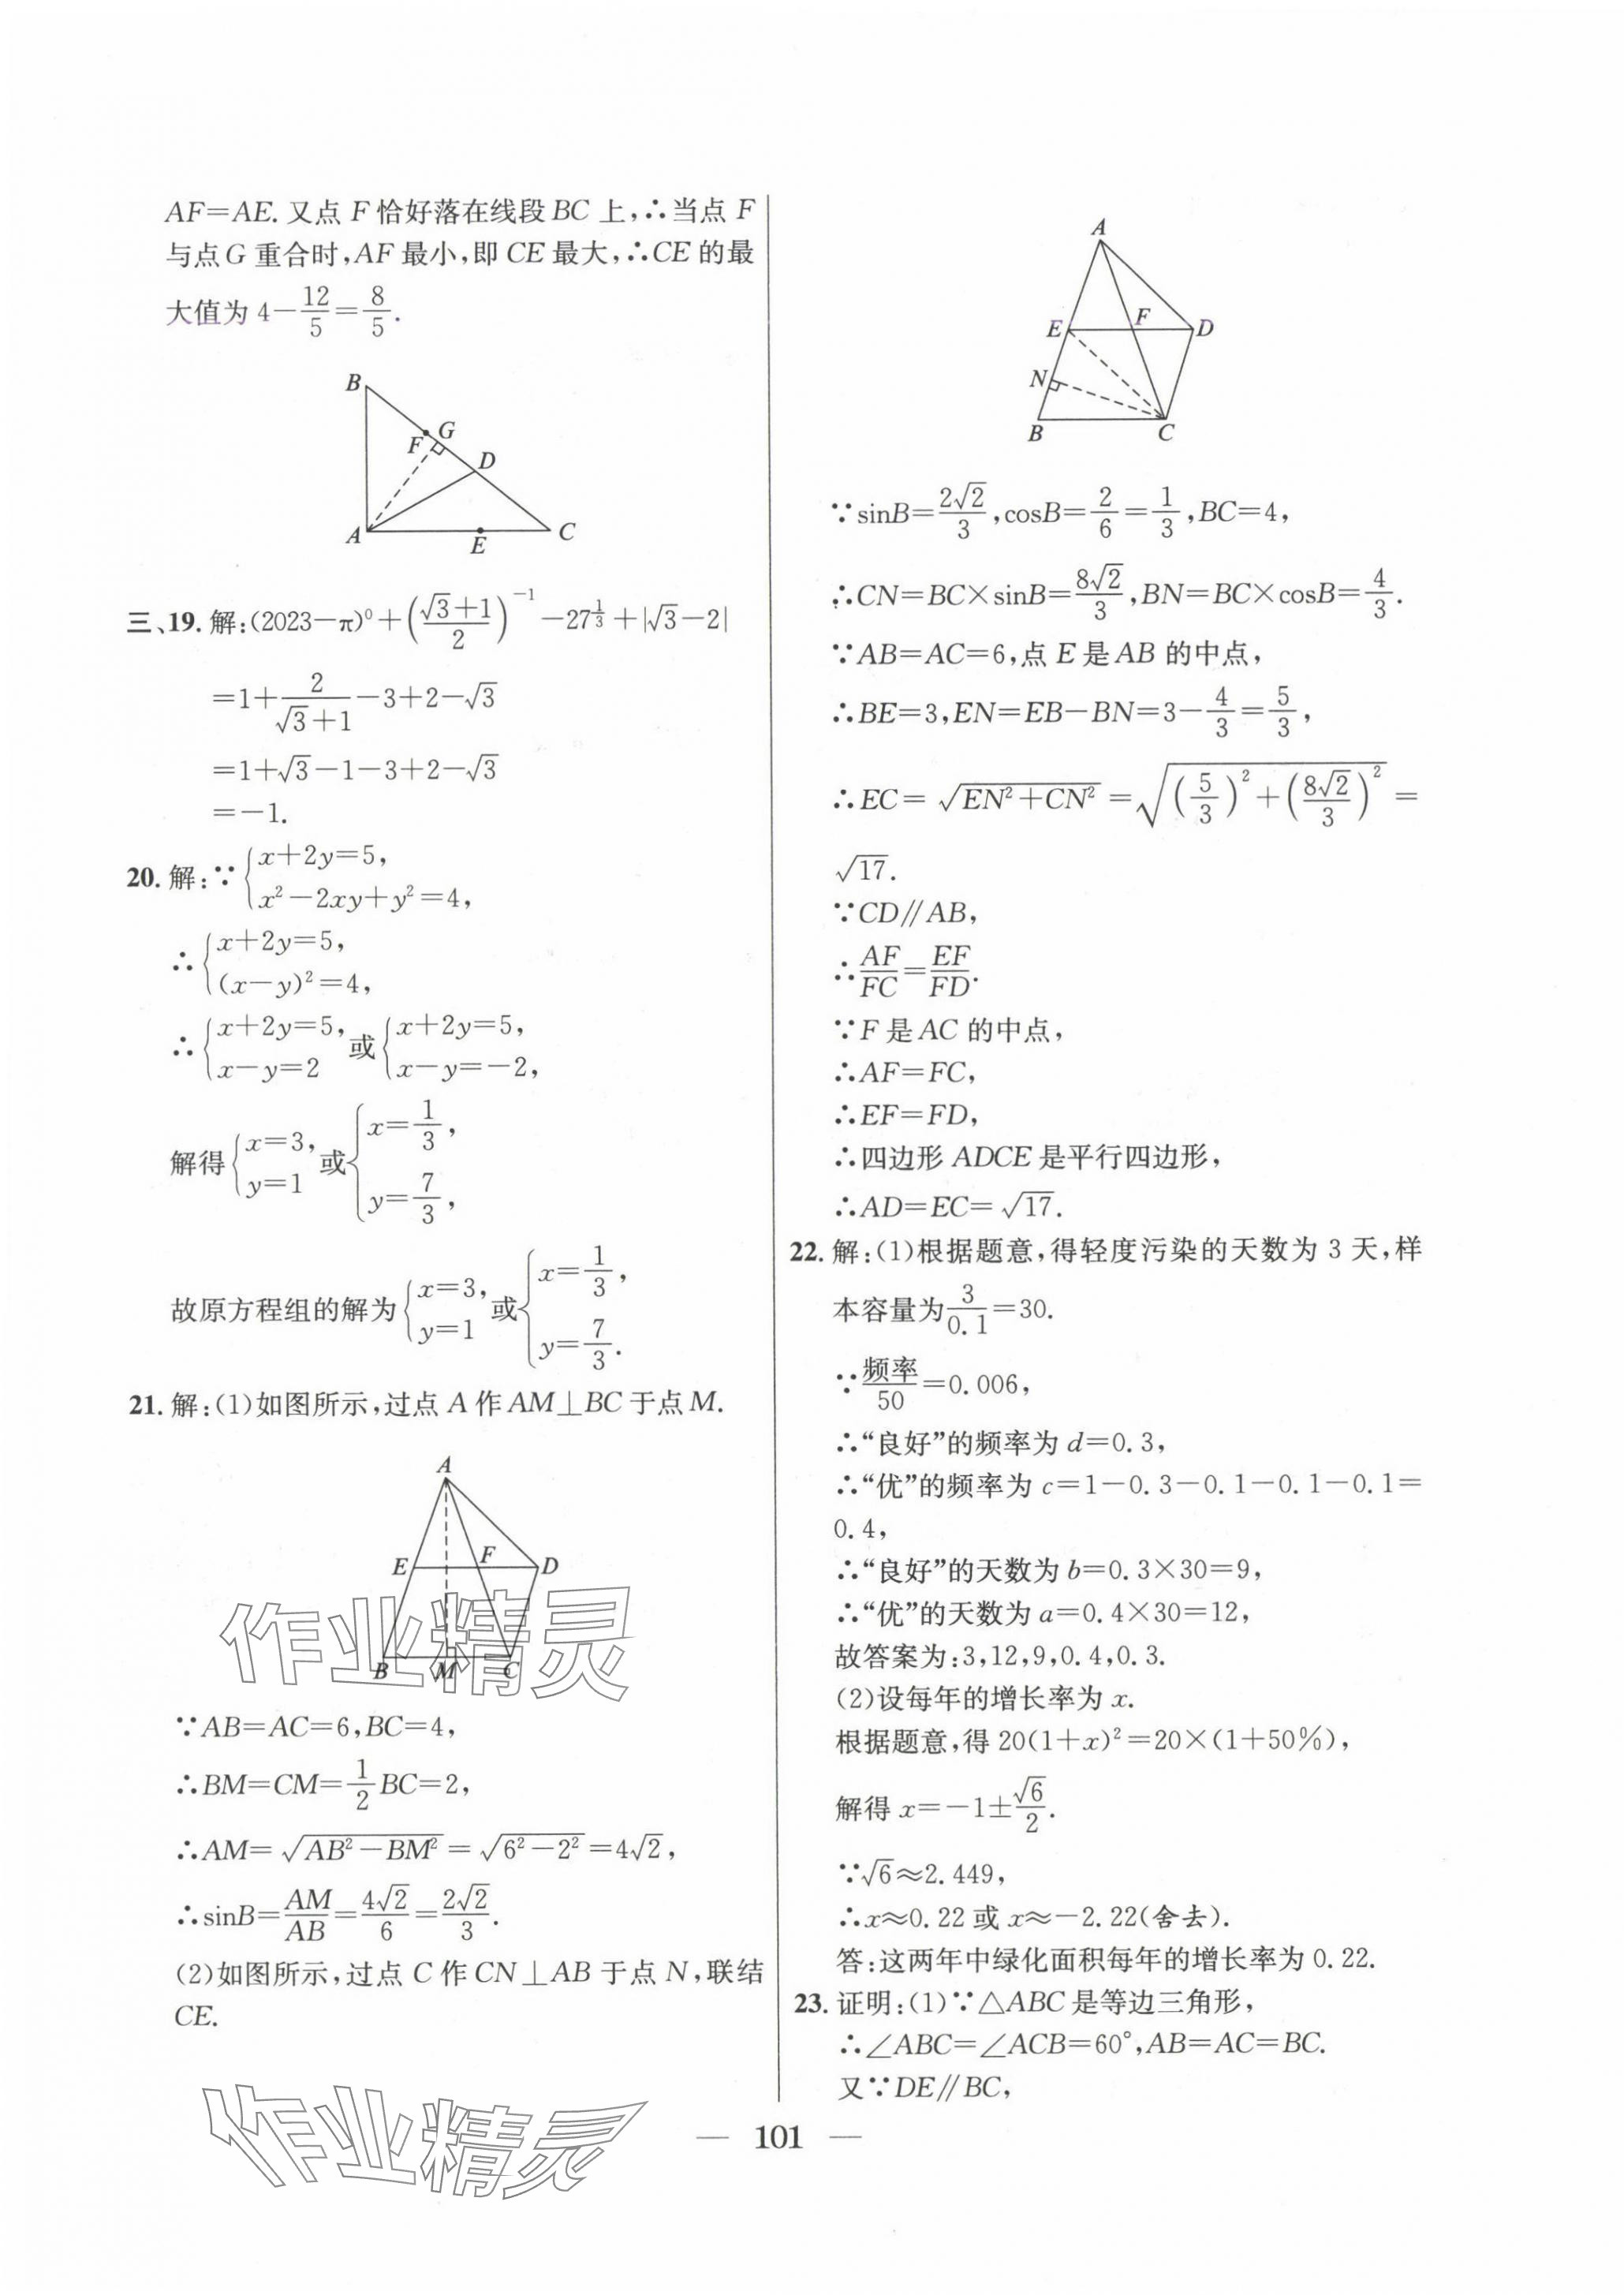 AF=AE.又点 F 恰好落在线段 BC 上,∴当点 F
与点 G 重合时,AF 最小,即 CE 最大,∴CE 的最
大值为 4-12/5=8/5.
B
F
G
D
A
E
C
三、19. 解:(2023-π)⁰+((√3+1)/2)⁻¹-27^(1/3)+|√3-2|
=1+2/(√3+1)-3+2-√3
=1+√3-1-3+2-√3
=-1.
20. 解:∵{x+2y=5,
x²-2xy+y²=4,
∴{x+2y=5,
(x-y)²=4,
∴{x+2y=5, x-y=2 或{x+2y=5, x-y=-2,
解得{x=3, y=1 或{x=1/3, y=7/3,
故原方程组的解为{x=3, y=1 或{x=1/3, y=7/3.
21. 解:(1)如图所示,过点 A 作 AM⊥BC 于点 M.
A
E
F
D
B
M
C
作业精灵
∵AB=AC=6,BC=4,
∴BM=CM=1/2 BC=2,
∴AM=√(AB²-BM²)=√(6²-2²)=4√2,
∴sinB=AM/AB=4√2/6=2√2/3.
(2)如图所示,过点 C 作 CN⊥AB 于点 N,联结
CE.
A
E
F
D
N
B
C
∵sinB=2√2/3,cosB=2/6=1/3,BC=4,
∴CN=BC×sinB=8√2/3,BN=BC×cosB=4/3.
∵AB=AC=6,点 E 是 AB 的中点,
∴BE=3,EN=EB-BN=3-4/3=5/3,
∴EC=√(EN²+CN²)=√((5/3)²+(8√2/3)²)=
√17.
∵CD∥AB,
∴AF/FC=EF/FD.
∵F 是 AC 的中点,
∴AF=FC,
∴EF=FD,
∴四边形 ADCE 是平行四边形,
∴AD=EC=√17.
22. 解:(1)根据题意,得轻度污染的天数为 3 天,样
本容量为3/0.1=30.
∵频率/50=0.006,
∴“良好”的频率为 d=0.3,
∴“优”的频率为 c=1-0.3-0.1-0.1-0.1=
0.4,
∴“良好”的天数为 b=0.3×30=9,
∴“优”的天数为 a=0.4×30=12,
故答案为:3,12,9,0.4,0.3.
(2)设每年的增长率为 x.
根据题意,得 20(1+x)²=20×(1+50%),
解得 x=-1±√6/2.
∵√6≈2.449,
∴x≈0.22 或 x≈-2.22(舍去).
答:这两年中绿化面积每年的增长率为 0.22.
23. 证明:(1)∵△ABC 是等边三角形,
∴∠ABC=∠ACB=60°,AB=AC=BC.
又∵DE∥BC,
作业精灵
— 101 —